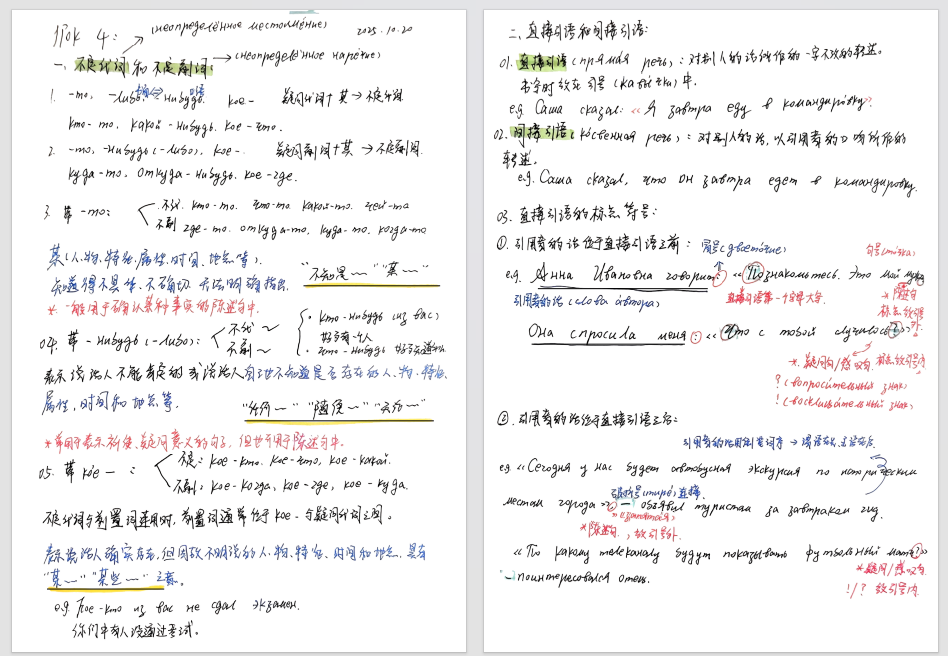 Урок 4:
(неопределённое местоимение)
2025.10.20
(неопределённое наречие)
一、不定代词和不定副词:
1. -то, -либо, -нибудь, кое- 疑问代词+其→不定代词
кто-то, какой-нибудь, кое-что.
2. -то, -нибудь(-либо), кое- 疑问副词+其→不定副词
куда-то, откуда-нибудь, кое-где.
3. 带-то: 不代. кто-то. что-то. какой-то. чей-то
不副 где-то. откуда-то, куда-то. когда-то
某(人、物、特征、属性、时间、地点等),
知道得不具体、不确切,无法明确指出
“不知是~” “某~”
*一般用于确认某种事实的陈述句中.
04. 带-нибудь(-либо): 不代~ 不副~
кто-нибудь из вас)
что-нибудь
表示说话人不能肯定的或说话人自己也不知道是否存在的人、物、特征、
属性、时间和地点等.
“任何~” “随便~”
*常用于表示祈使、疑问意义的句子, 但也可用于陈述句中.
05. 带кое-: 不定: кое-кто. кое-что, кое-какой.
不副: кое-когда, кое-где, кое-куда.
不定代词与前置词连用时, 前置词通常位于кое-与疑问代词之间。
表示说话人确实知道,但因故不明说的人、物、特征、时间和地点,具有
“某~” “某些~” 之意。
e.g. Кое-кто из вас не сдал экзамен.
你们中有人没通过考试。
二、直接引语和间接引语:
01. 直接引语(прямая речь): 对别人的话所作的一字不改的转述。
书写时放在引号(кавычки)中.
e.g. Саша сказал: «Я завтра еду в командировку».
02. 间接引语(косвенная речь): 对别人的话, 以引用者的口吻所作的
转述。
e.g. Саша сказал, что он завтра едет в командировку.
03. 直接引语的标点符号:
①. 引用者的话位于直接引语之前: 冒号(двоеточие)
句号(точка)
e.g. Анна Ивановна говорит: «Познакомьтесь. Это мой муж».
引用者的话(слова автора)
直接引语第一个字母大写.
*陈述句
标点放引号外.
Она спросила меня: «Что с тобой случилось?»
*疑问句/感叹句 标点放引号内
? (вопросительный знак)
! (восклицательный знак)
②. 引用者的话位于直接引语之后:
e.g «Сегодня у нас будет автобусная экскурсия по историческим
местам города», — объявил туристам за завтраком гид.
破折号(тире)连接.
(запятая)
*陈述句, 放引号外.
«По какому телеканалу будут показывать футбольный матч?»
— поинтересовался отец.
*疑问/感叹句
!/? 放引号内.